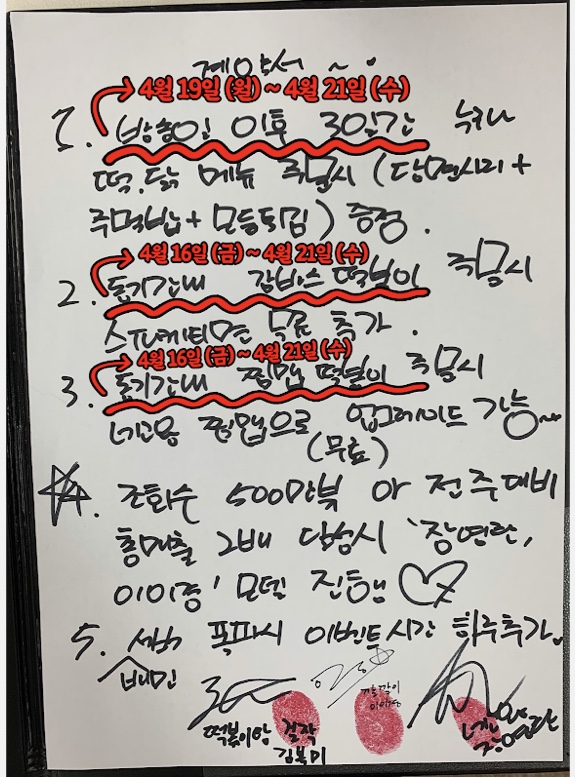 계약서 ~.
4월 19일 (월) ~ 4월 21일 (수)
1. 방송일 이후 30일간
떡.닭 메뉴 주문시 (당면사리 +
주먹밥 + 모듬튀김) 증정.
4월 16일 (금) ~ 4월 21일 (수)
2. 동기간내 감바스 떡볶이 주문시
스파게티면 무료 추가.
4월 16일 (금) ~ 4월 21일 (수)
3. 동기간내 찜맵 떡볶이 주문시
네고용 찜맵으로 업그레이드 가능~
(무료)
4. 조회수 500만뷰 or 전주대비
총매출 2배 달성시 '장영란,
이이경' 모델 진행
5. 서버 폭파시 이벤트시간 하루추가.
배민
떡볶이암 걸작
김복미
깐깐이
이이경
장영란